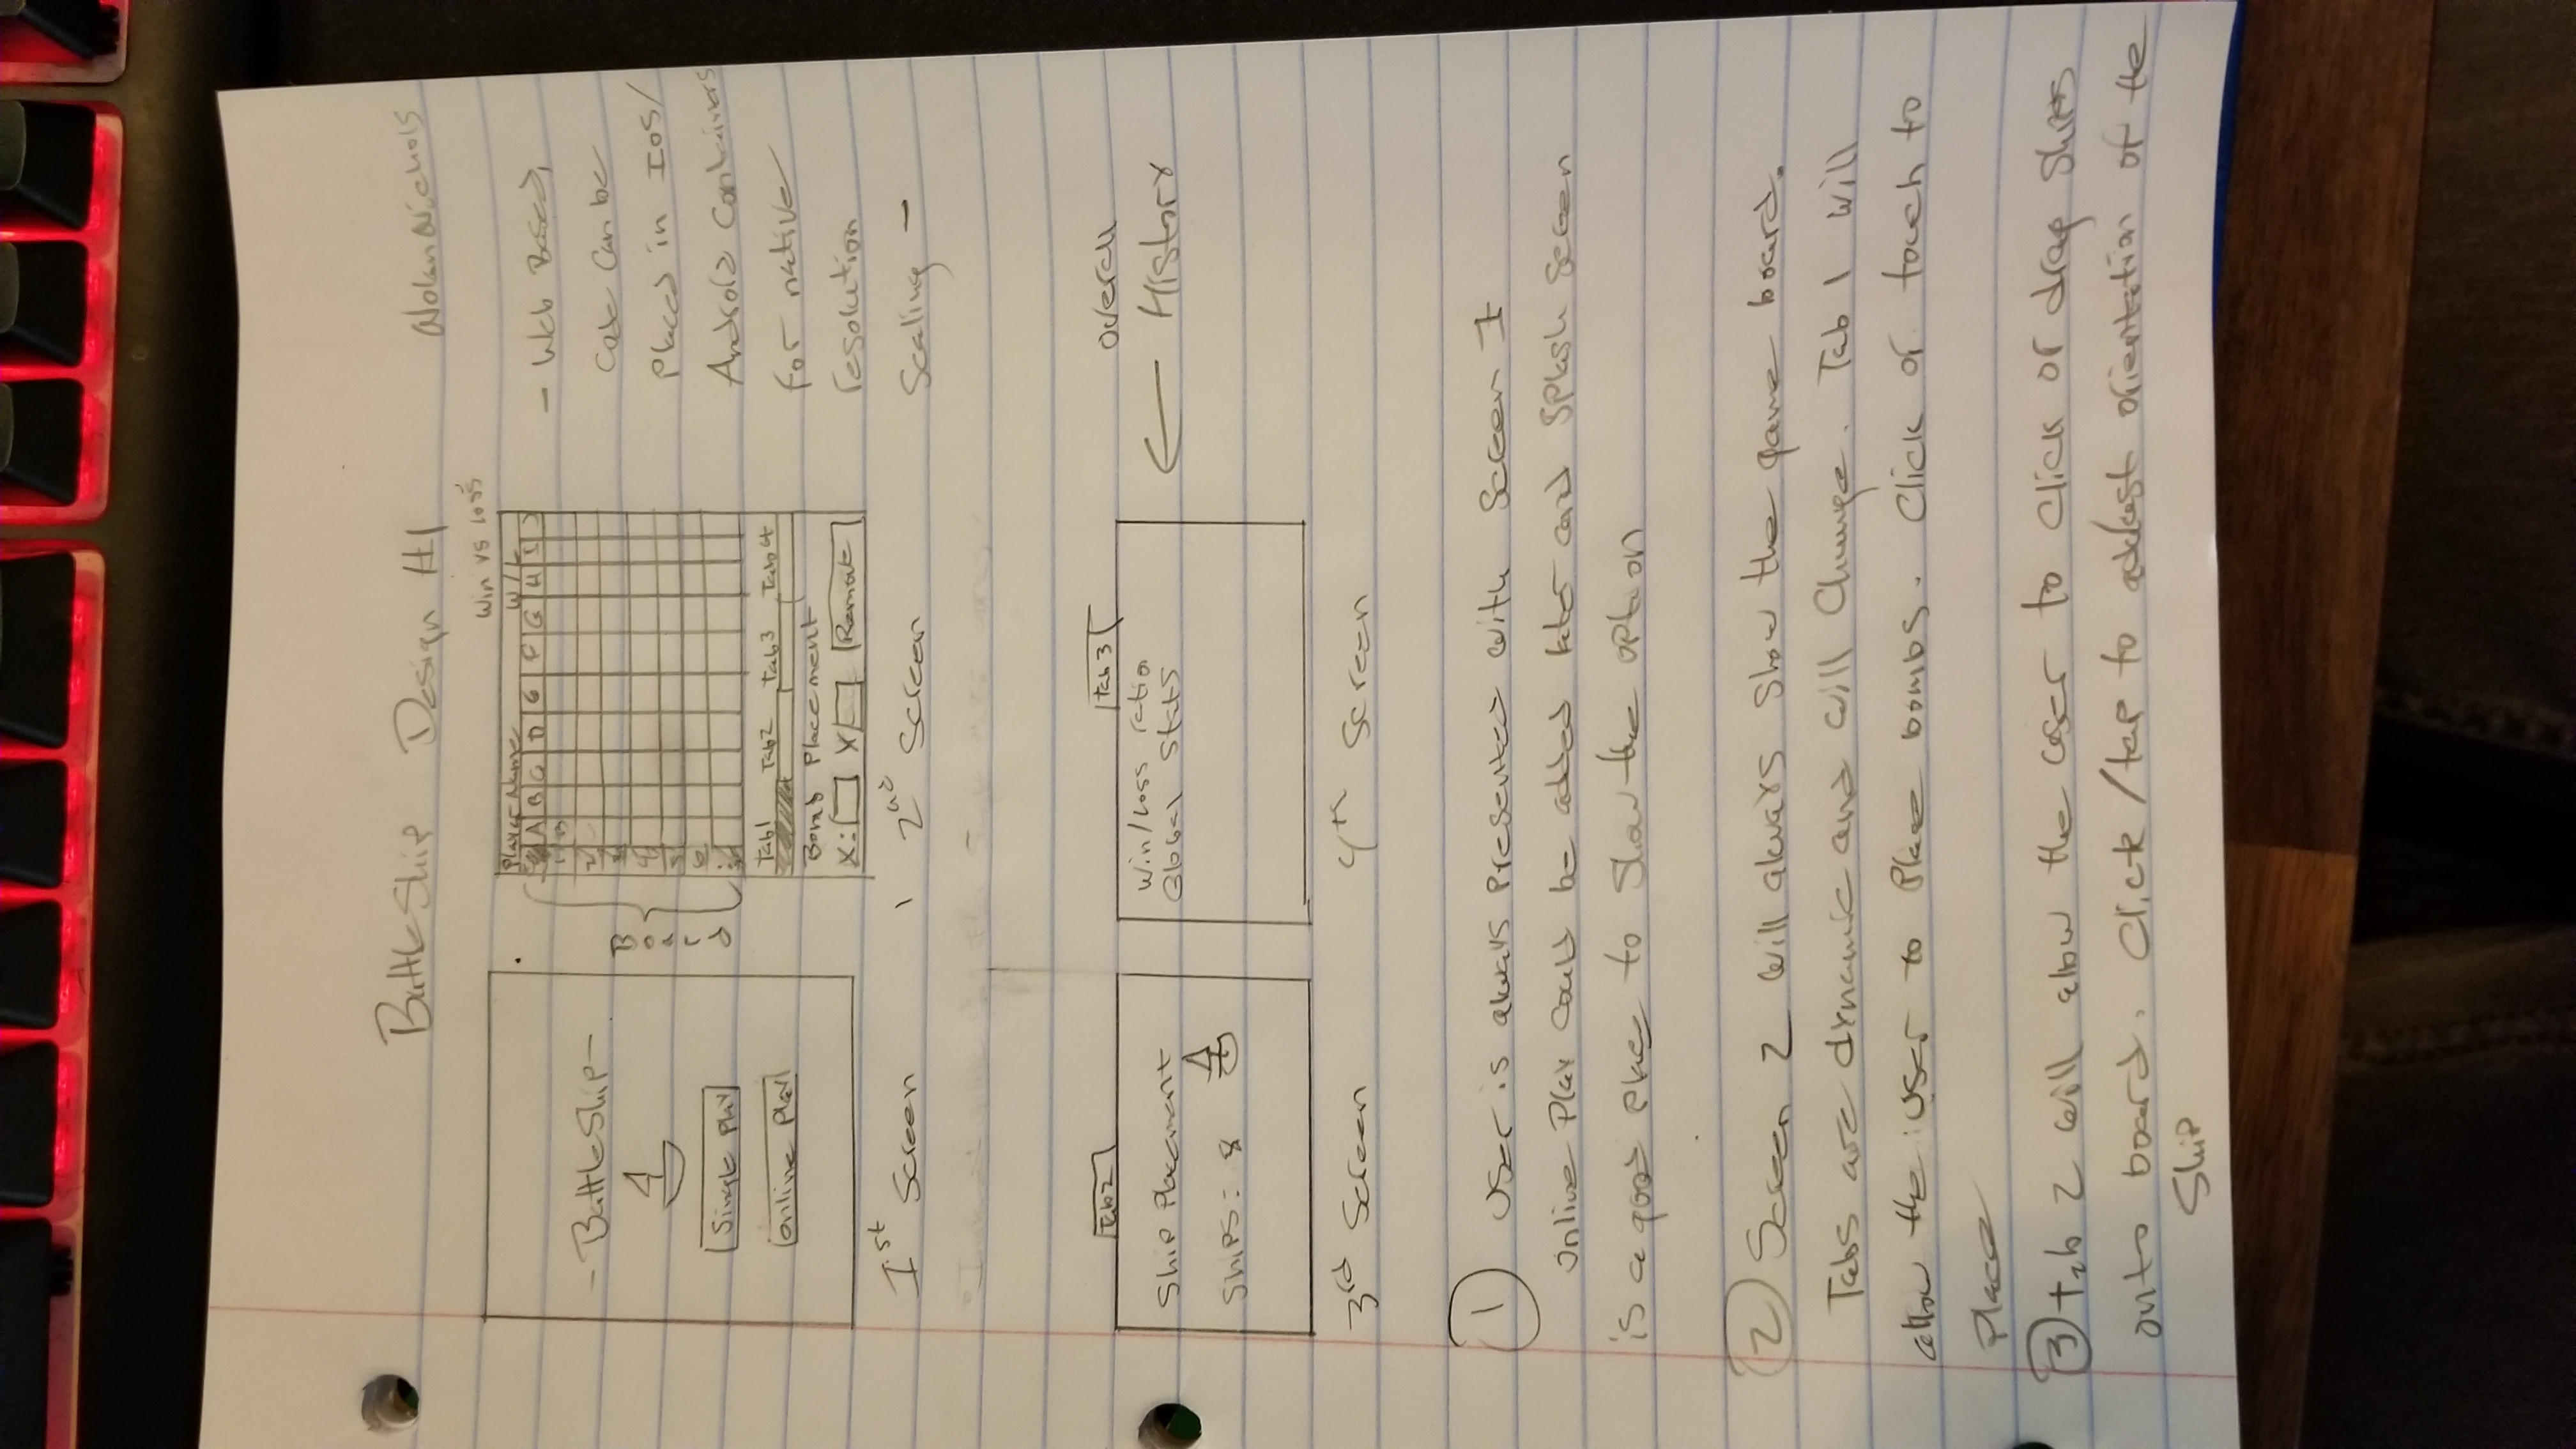 BattleShip Design #1
Nolan Nichols
Win vs Loss
- BattleShip -
Single Play
Online Play
1st Screen
Board
Player Name W/L
A B C D E F G H I J
1 B
2
3
4
5
6
Tab1 Tab2 Tab3 Tab4
Bomb Placement
X: Y
2nd Screen
- Web Based,
Code Can be
Placed in IOS/
Android Containers
for native
resolution
Scaling -
Tab2
Ship Placement
Ships: 8
3rd Screen
Tab 3
Win/Loss ratio
Global Stats
4th Screen
overall
← History
1 User is always Presented with Screen 1
Online Play Could be added later and Splash Screen
is a good place to Show the option
2 Screen 2 will always Show the game board.
Tabs are dynamic and will Change. Tab 1 will
allow the user to Place bombs. Click or touch to
Place
3 tab 2 will allow the user to click or drag Ships
onto board. Click/tap to orientation of the
Ship